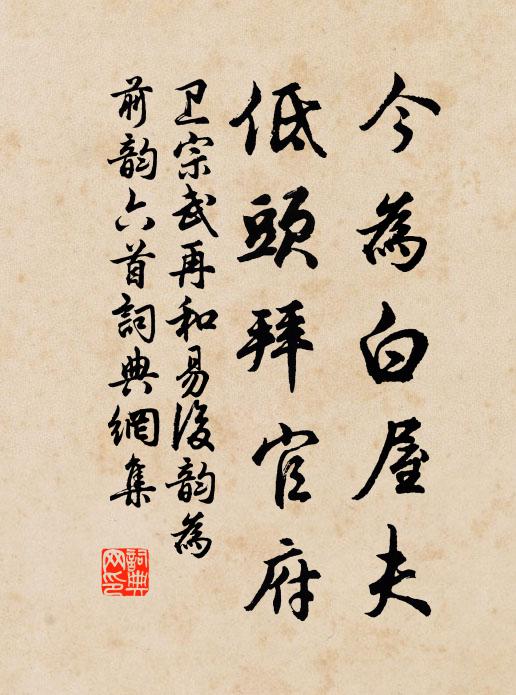 今為白屋夫
低頭拜官府
卫宗武再和易後韵為
前韵六首詞典網集
詞典網印